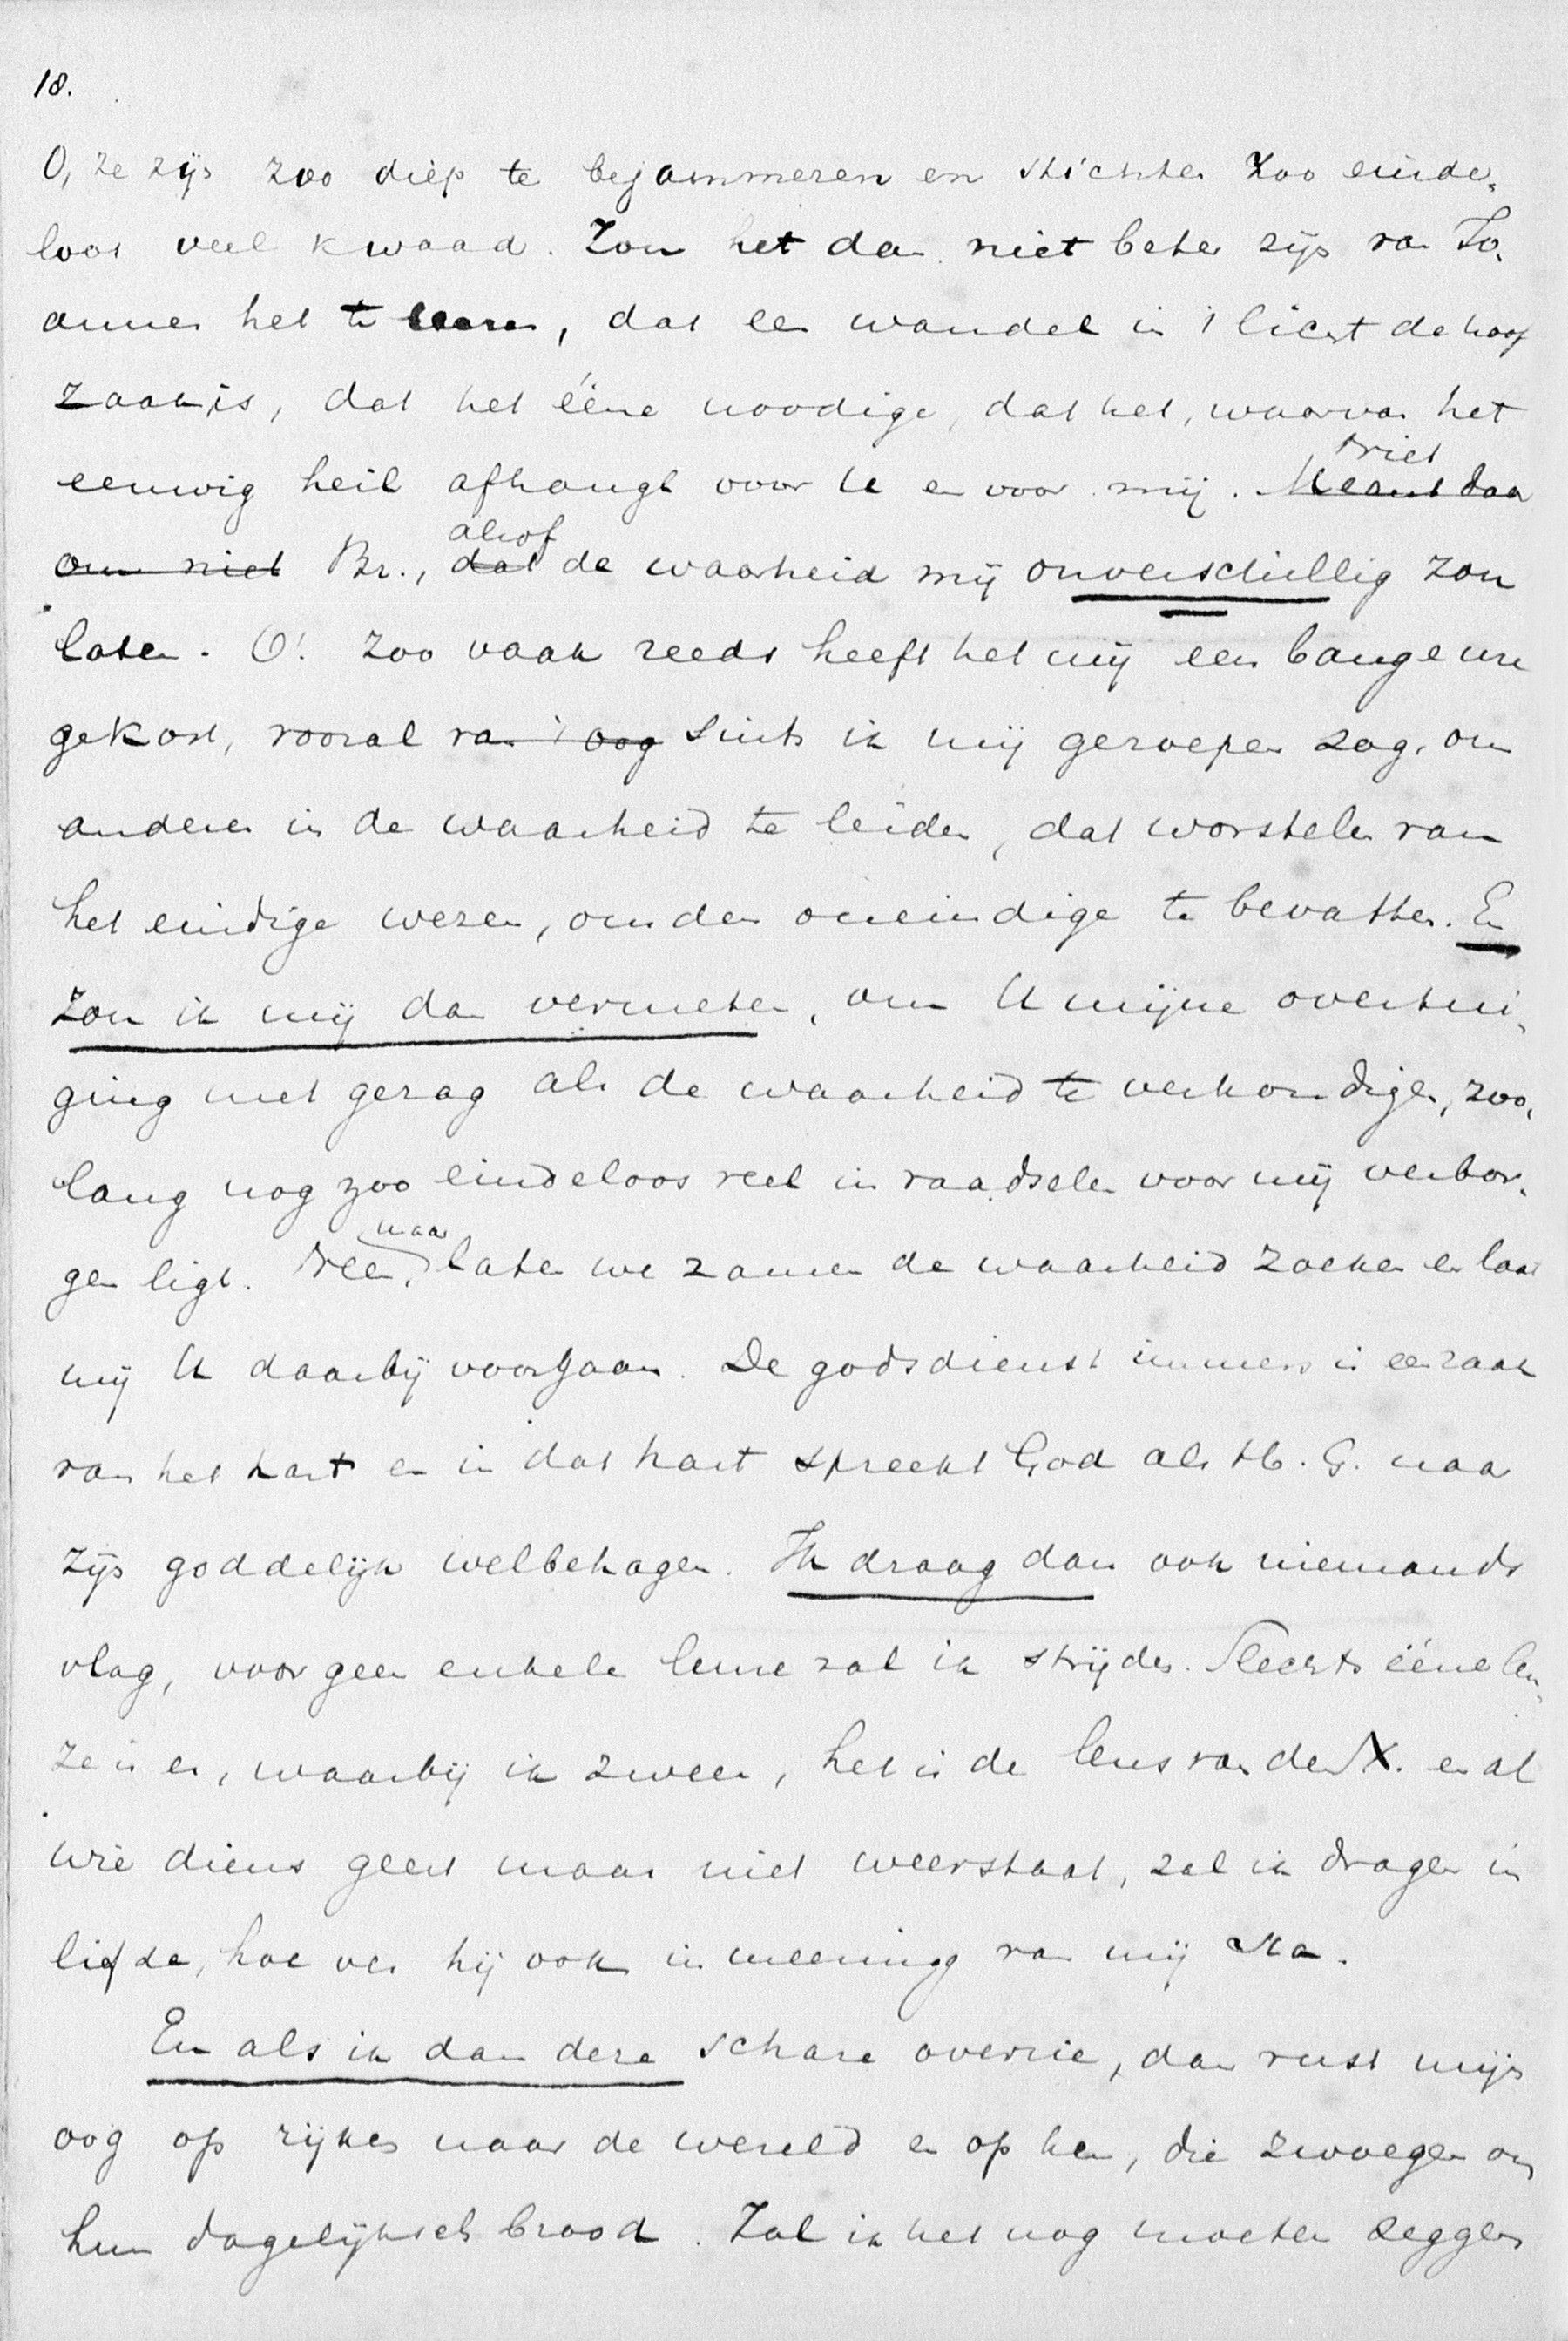 18.
O, ze zijn zoo diep te bejammeren en stichten zoo einde-
loos veel kwaad. Zou het dan niet beter zijn van Jo-
annes het te leeren, dat een wandel in 't licht de hoof
zaak is, dat het ééne noodige, dat het, waarvan het
eeuwig heil afhangt voor U en voor mij. Meent daar
Niet
om niet Br., dat de waarheid mij onverschillig zou
alsof
laten. O! zoo vaak reeds heeft het mij een bange ure
gekost, vooral van 't oog sints ik mij geroepen zag, om
anderen in de waarheid te leiden, dat worstelen van
het eindige wezen, om den oneindige te bevatten. En
zou ik mij dan vermeten, om U mijne overtui-
ging met gezag als de waarheid te verkondigen, zoo-
lang nog zoo eindeloos veel in raadselen voor mij verbor-
gen ligt. Neen, maar laten we zamen de waarheid zoeken en laat
mij U daarbij voorgaan. De godsdienst immers is een zaak
van het hart en in dat hart spreekt God als H. G. naar
zijn goddelijk welbehagen. Ik draag dan ook niemands
vlag, voor geen enkele leuze zal ik strijden. Slechts ééne leu-
ze is er, waarbij ik zweer, het is de leus van den X. en al
wie diens geest maar niet weerstaat, zal ik dragen in
liefde, hoe ver hij ook in meening van mij sta.
En als ik dan deze schare overzie, dan rust mijn
oog op rijken naar de wereld en op hen, die zwoegen om
hun dagelijksch brood. Zal ik het nog moeten zeggen